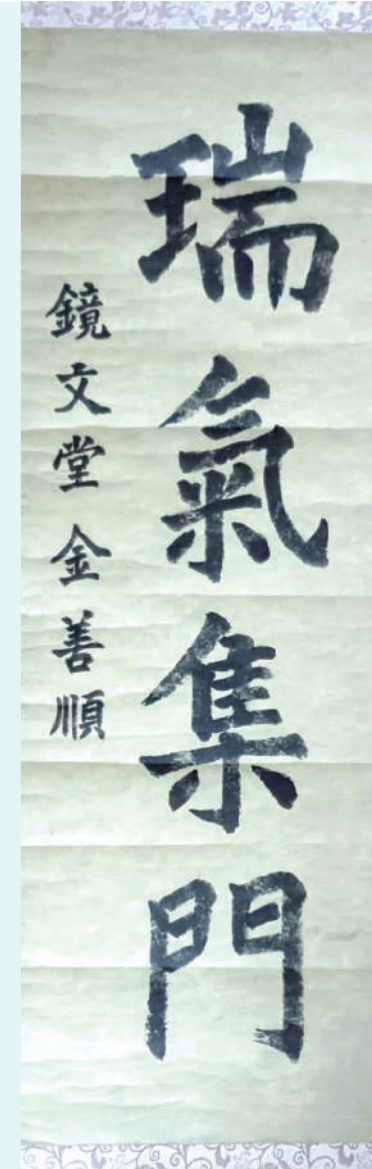 瑞氣集門
鏡文堂金善順